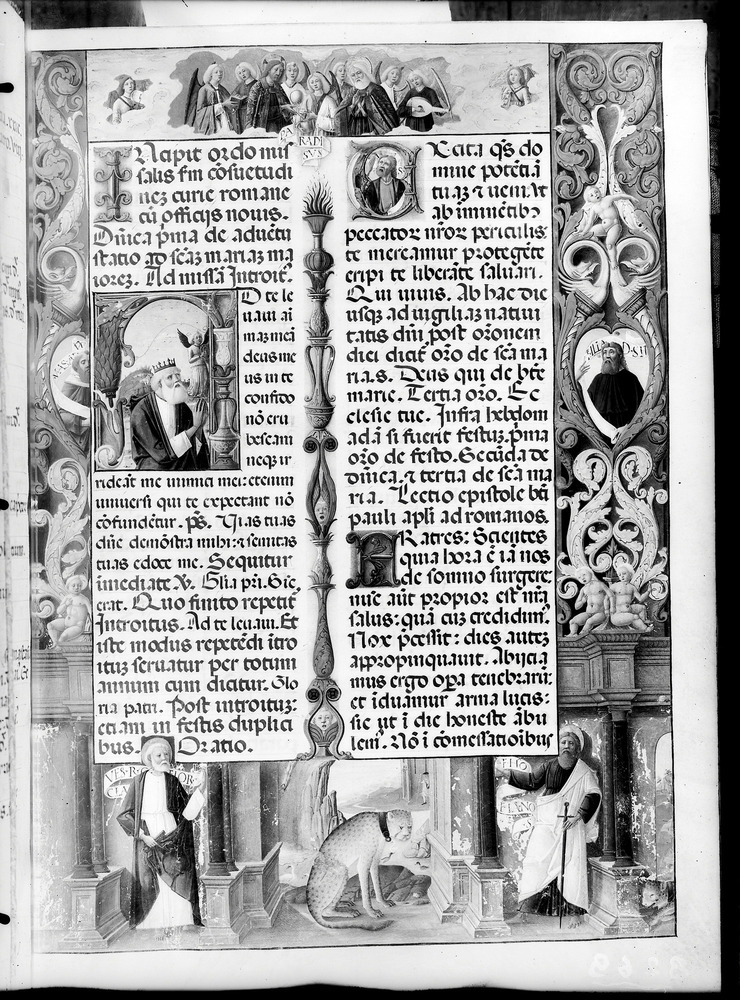 PA
RADI
SVS
Incipit ordo mis
salis fm cōsuetudi
nez curie romane
cū officijs nouis.
Dñica pma de aduētu
statio ad scāz mariaz ma
iorez. Ad missā Introit̄.
D te le
uaui aī
maz meā
deus me
us in te
confido
nō eru
bescam
neqz ir
rideāt me inimici mei: etenim
uniuersi qui te expectant nō
cōfundētur. p̄s. Uias tuas
dn̄e demōstra mihi: ⁊ semitas
tuas edoce me. Sequitur
īmediate ℣. Glīa pr̄i. Sic
erat. Quo finito repetit̄
Introitus. Ad te leuaui. Et
iste modus repetēdi ītro
ituz seruatur per totum
annum cum dicitur. Glo
ria patri. Post introituz:
etiam in festis duplici
bus. Oratio.
Excita qs do
mine potētiā
tuaz ⁊ ueni ut
ab īminētibꝫ
peccatoꝝ nr̄oꝝ periculis
te mereamur protegēte
eripi te liberāte saluari.
Qui uiuis. Ab hac die
usqz ad uigiliaz natiui
tatis dn̄i post orōnem
diei dicit̄ orō de scā ma
ria.s. Deus qui de btē
marie. Tertia orō. Ec
clesie tue. Infra hebdom
adā si fuerit festuz. pma
orō de festo. Secūda de
dn̄ica. ⁊ tertia de scā ma
ria. Lectio epistole bti
pauli apli ad romanos.
FRatres: Scientes
quia hora ē iā nos
de somno surgere:
nūc aūt propior est nr̄a
salus: quā cuz credidim̄.
Nox pcessit: dies autez
appropinquauit. Abijcia
mus ergo opa tenebrarū:
et iduamur arma lucis:
sic ut ī die honeste ābu
lem̄. Nō ī comessatioībus